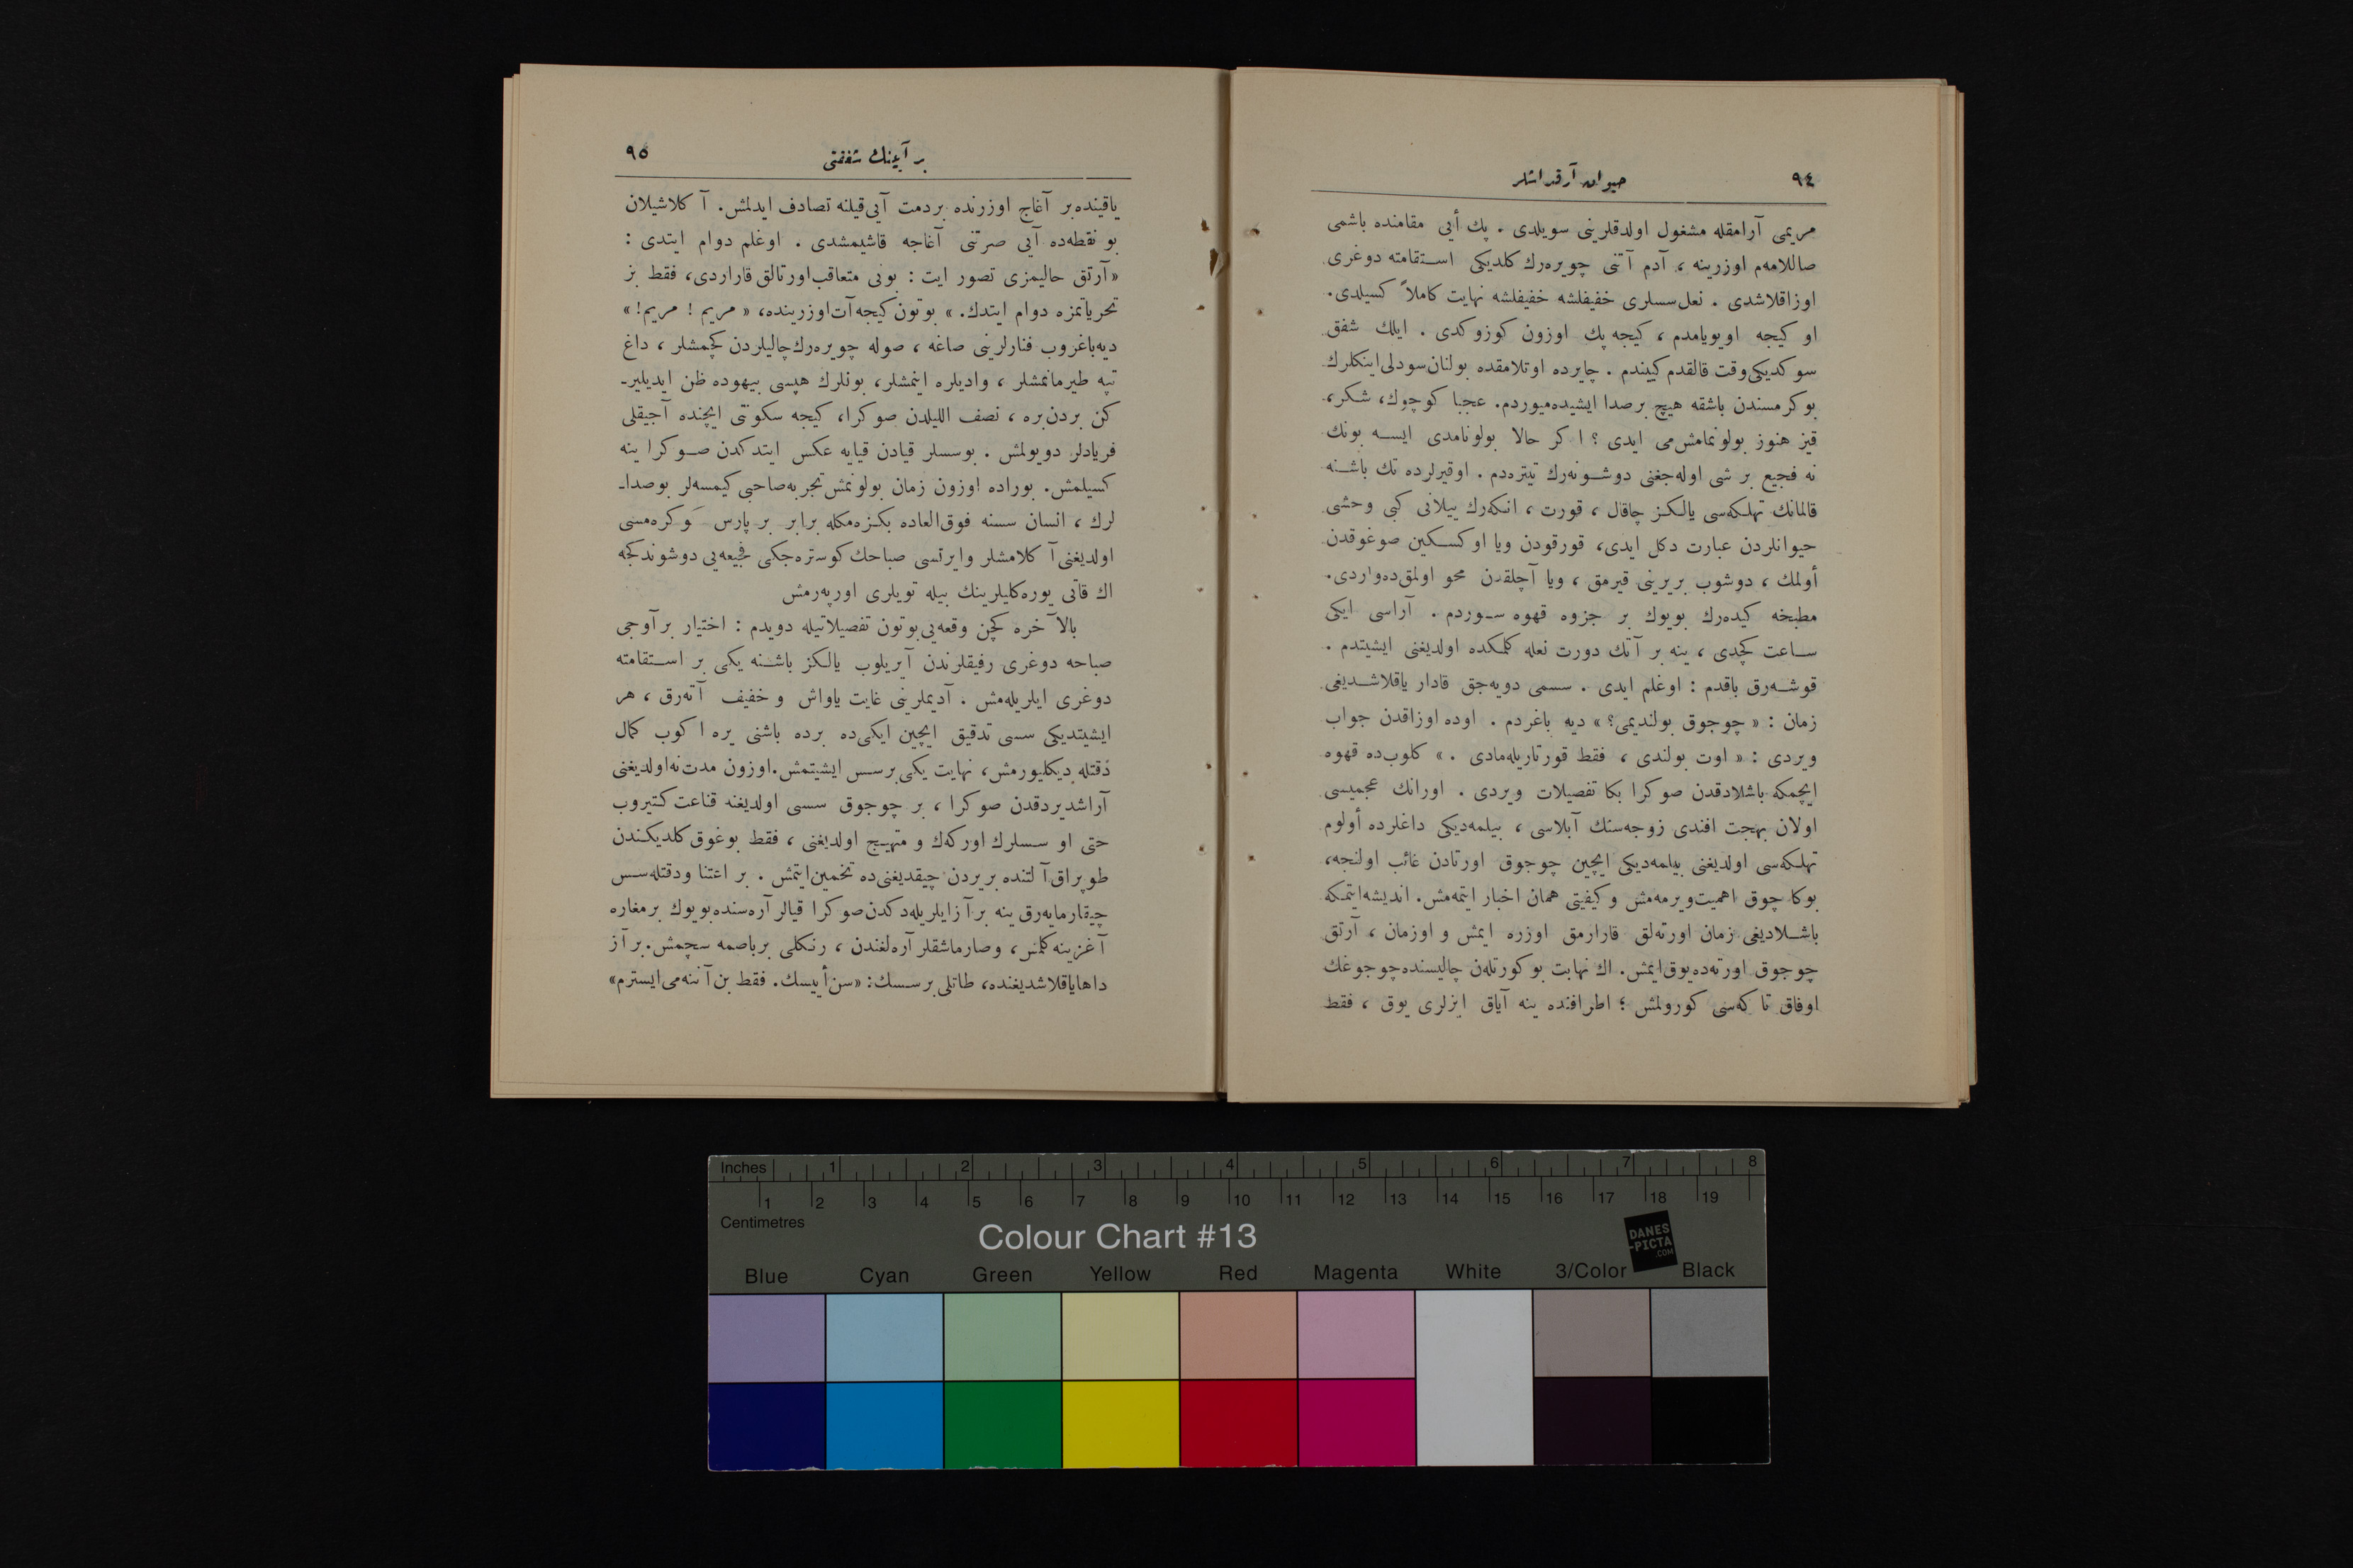 ٩٤
حيوان آرقداشلر
مريمى آرامقله مشغول اولدقلرينى سويلدى . پك أيى مقامنده باشمى
صاللامه‌م اوزرينه ، آدم آتنى چويره‌رك كلديكى استقامته دوغرى
اوزاقلاشدى . نعل سسلرى خفيفلشه خفيفلشه نهايت كاملاً كسيلدى.
او كيجه اويويامدم ، كيجه پك اوزون كوزوكدى . ايلك شفق
سوكديكى وقت قالقدم كييندم . چايرده اوتلامقده بولنان سودلى اينكلرك
بوكرمسندن باشقه هيچ برصدا ايشيده‌ميوردم. عجبا كوچوك، شكر،
قيز هنوز بولونمامش‌مى ايدى ؟ اكر حالا بولونامدى ايسه بونك
نه فجيع بر شى اوله‌جغنى دوشونه‌رك تيتره‌دم . اوقيرلرده تك باشنه
قالمانك تهلكه‌سى يالكز چاقال ، قورت ، انكه‌رك ييلانى كبى وحشى
حيوانلردن عبارت دكل ايدى، قورقودن ويا اوكسكين صوغوقدن
أولمك ، دوشوب بريرينى قيرمق ، ويا آچلقدن محو اولمق‌ده‌واردى.
مطبخه كيده‌رك بويوك بر جزوه قهوه سوردم . آراسى ايكى
ساعت كچدى ، ينه بر آتك دورت نعله كلمكده اولديغنى ايشيتدم .
قوشه‌رق باقدم : اوغلم ايدى . سسمى دويه‌جق قادار ياقلاشديغى
زمان : « چوجوق بولنديمى؟ » ديه باغردم . اوده اوزاقدن جواب
ويردى : « اوت بولندى ، فقط قورتاريله‌مادى . » كلوب‌ده قهوه
ايچمكه باشلادقدن صوكرا بكا تفصيلات ويردى . اورانك عجميسى
اولان بهجت افندى زوجه‌سنك آبلاسى ، بيلمه‌ديكى داغلرده أولوم
تهلكه‌سى اولديغنى بيلمه‌ديكى ايچين چوجوق اورتادن غائب اولنجه،
بوكا چوق اهميت‌ويرمه‌مش و كيفيتى همان اخبار ايتمه‌مش. انديشه‌ايتمكه
باشلاديغى زمان اورته‌لق قارارمق اوزره ايمش و اوزمان ، آرتق
چوجوق اورته‌ده‌يوق‌ايمش. اك نهايت بوكورتلەن چاليسنده‌چوجوغك
اوفاق تاكه‌سى كورولمش ؛ اطرافنده ينه آياق ايزلرى يوق ، فقط
بر آيينك شفقتى
٩٥
ياقينده‌بر آغاج اوزرنده بردمت آيى‌قيلنه تصادف ايدلمش. آكلاشيلان
بو نقطه‌ده آيى صرتنى آغاجه قاشيمشدى . اوغلم دوام ايتدى :
«آرتق حاليمزى تصور ايت : بونى متعاقب‌اورتالق قاراردى، فقط بز
تحرياتمزه دوام ايتدك. » بوتون كيجه‌آت‌اوزرينده، « مريم ! مريم! »
ديه‌باغروب فنارلرينى صاغه ، صوله چويره‌رك‌چاليلردن كچمشلر ، داغ
تپه طيرمانمشلر ، واديلره اينمشلر، بونلرك هپسى بيهوده ظن ايديليرـ
كن بردن‌بره ، نصف الليلدن صوكرا، كيجه سكونتى ايچنده آجيقلى
فريادلر دويولمش . بوسسلر قيادن قيايه عكس ايتدكدن صوكرا ينه
كسيلمش. بوراده اوزون زمان بولونمش تجربه‌صاحبى كيمسه‌لر بوصداـ
لرك ، انسان سسنه فوق‌العاده بكزه‌مكله برابر بر پارس كوكره‌مسى
اولديغنى آكلامشلر وايرتسى صباحك كوستره‌جكى فجيعه‌يى دوشوندكجه
اك قاتى يوره‌كليلرينك بيله تويلرى اورپه‌رمش
بالآخره كچن وقعه‌يى بوتون تفصيلاتيله دويدم : اختيار برآوجى
صباحه دوغرى رفيقلرندن آيريلوب يالكز باشنه يكى بر استقامته
دوغرى ايلريله‌مش . آديملرينى غايت ياواش و خفيف آته‌رق ، هر
ايشيتديكى سسى تدقيق ايچين ايكى‌ده برده باشنى يره اكوب كمال
دقتله ديكليورمش، نهايت يكى برسس ايشيتمش.اوزون مدت‌نه‌اولديغنى
آراشديردقدن صوكرا ، بر چوجوق سسى اولديغنه قناعت كتيروب
حتى او سسلرك اوركه‌ك و متهيج اولديغنى ، فقط بوغوق كلديكندن
طوپراق آلتنده بريردن چيقديغنى‌ده تخمين‌ايتمش . بر اعتنا ودقتله سس
چيقارمايه‌رق ينه برآز ايلريله‌دكدن صوكرا قيالر آره‌سنده بويوك برمغاره
آغزينه كلمش ، وصارماشقلر آره‌لغندن ، رنكلى برباصمه سچمش. برآز
داها ياقلاشديغنده، طاتلى برسسك: «سن أييسك. فقط بن آننه‌مى ايسترم»
Inches 1 2 3 4 5 6 7 8
1 2 3 4 5 6 7 8 9 10 11 12 13 14 15 16 17 18 19
Centimetres
Colour Chart #13
DANES
-PICTA
.COM
Blue Cyan Green Yellow Red Magenta White 3/Color Black